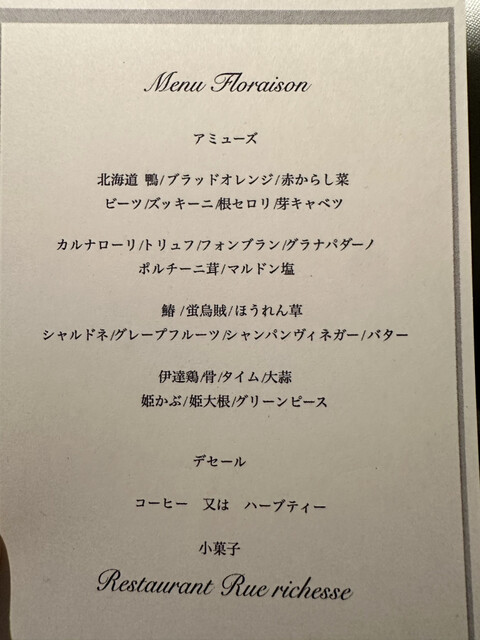 Menu Floraison
アミューズ
北海道 鴨/ブラッドオレンジ/赤からし菜
ビーツ/ズッキーニ/根セロリ/芽キャベツ
カルナローリ/トリュフ/フォンブラン/グラナパダーノ
ポルチーニ茸/マルドン塩
鰆 /蛍烏賊/ほうれん草
シャルドネ/グレープフルーツ/シャンパンヴィネガー/バター
伊達鶏/骨/タイム/大蒜
姫かぶ/姫大根/グリーンピース
デセール
コーヒー 又は ハーブティー
小菓子
Restaurant Rue richesse